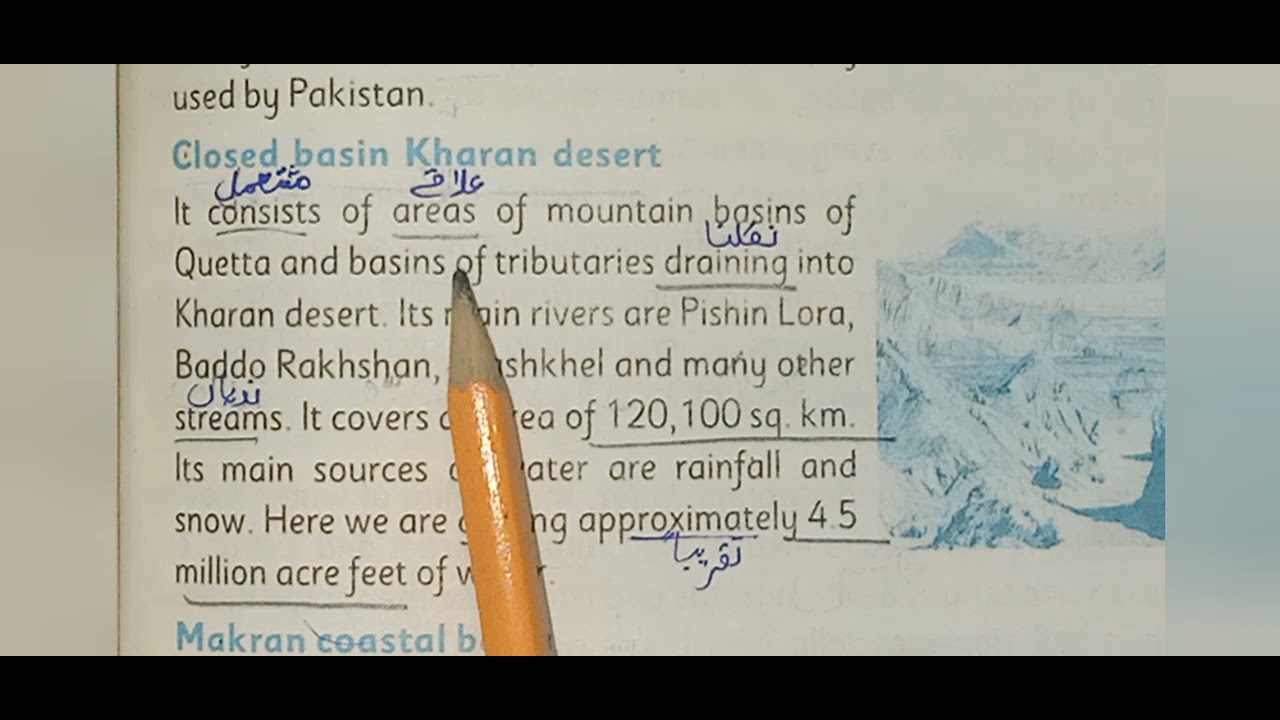 used by Pakistan.
Closed basin Kharan desert
مشتمل علاقے
It consists of areas of mountain basins of
نکلنا
Quetta and basins of tributaries draining into
Kharan desert. Its main rivers are Pishin Lora,
Baddo Rakhshan, shkhel and many other
ندیاں
streams. It covers area of 120,100 sq. km.
Its main sources water are rainfall and
snow. Here we are approximately 4.5
تقریباً
million acre feet of
Makran coastal